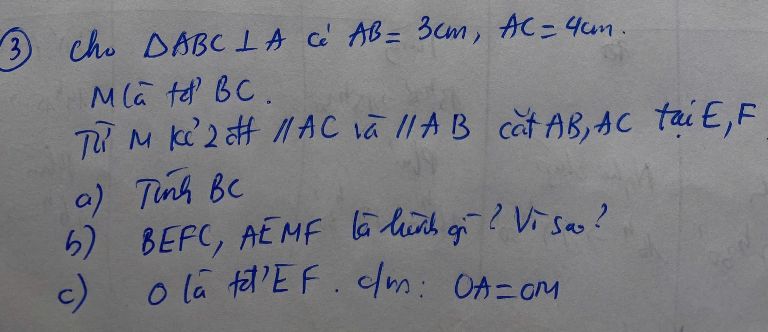 3 Cho ΔABC ⊥ A có AB = 3cm, AC = 4cm.
M là tđ' BC.
Từ M kẻ 2 đt // AC và // AB cắt AB, AC tại E, F
a) Tính BC
b) BEFC, AEMF là hình gì? Vì sao?
c) O là tđ' EF. c/m: OA = OM